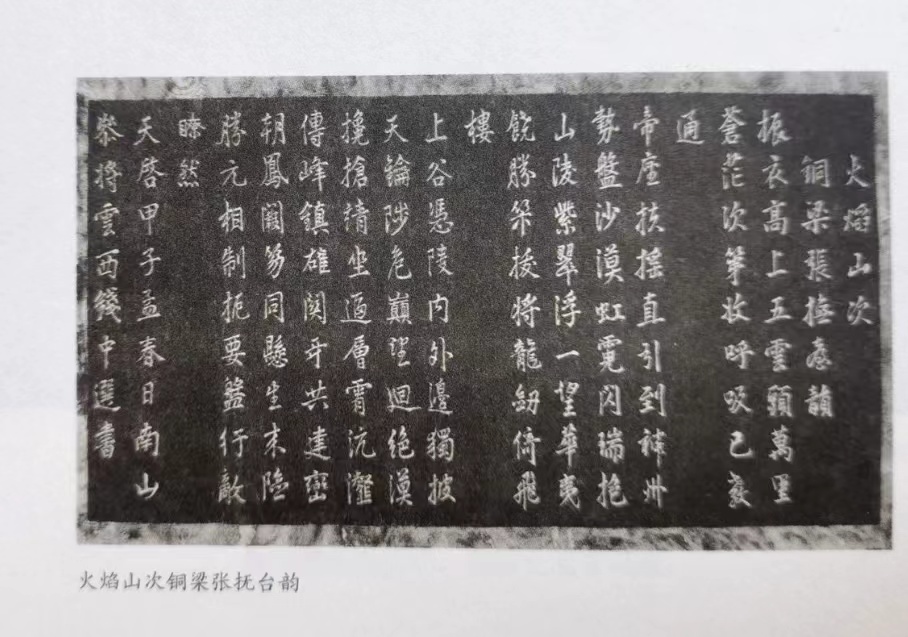 火焰山次
銅梁張撫臺韻
振衣高上五雲頭萬里
蒼茫次第收呼吸已教
通
帝座扶搖直引到神州
勢盤沙漠虹霓閃瑞抱
山陵紫翠浮一望華夷
饒勝筭拔將龍劒倚飛
樓
上谷憑陵內外邊獨披
天鑰陟危巔望迴絕漠
攙搶靖坐逼層霄沆瀣
傳峰鎮雄關牙共建巒
朝鳳闕笏同懸生來險
勝元相制扼要盤行敵
瞭然
天啓甲子孟春日南山
叅將雲西錢中選書
火焰山次铜梁张抚台韵